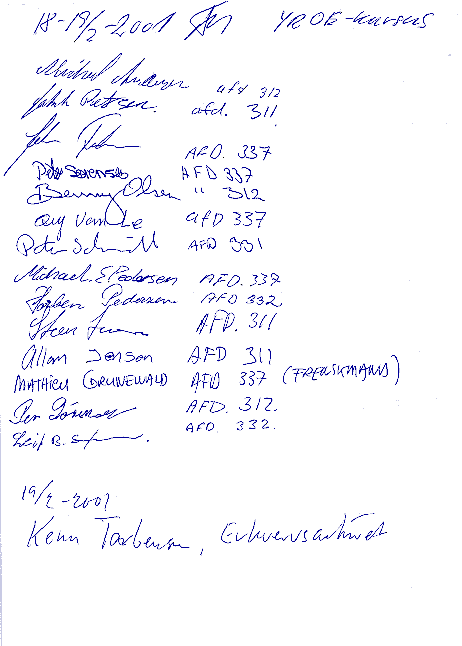 18-19/2-2001 YROE-kursus
Michael Andersen afd 312
Jakob Petersen. afd. 311
AFD. 337
Peter Sørensen AFD 337
Benny Olsen " 312
Quy Van Le afD 337
Peter Schmidt AFD 331
Michael E Pedersen AFD. 337
Torben Pedersen AFD 332
Steen AFD. 311
Allan Jenson AFD 311
MATHIEU GRUNEWALD AFD 337 (FRANSKMAND)
Per AFD. 312.
Leif B. AFD. 332.
19/2-2001
Kenn Torbensen, Erhvervsaktivet